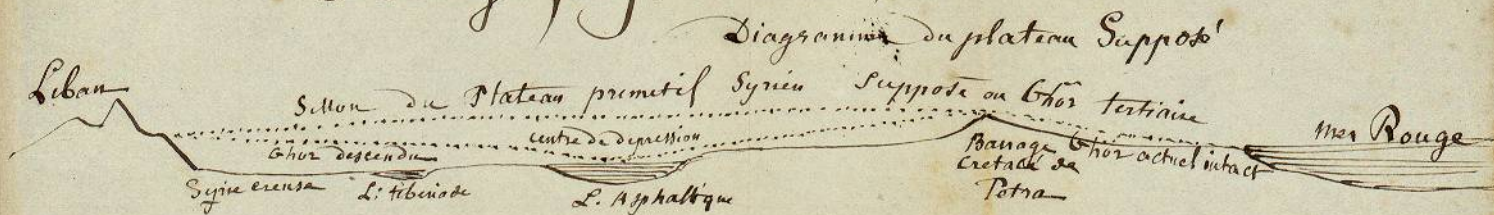 Diagramme du plateau Supposé
Liban
Sillon du Plateau primitif Syrien Supposé ou Ghor tertiaire
centre de depression
Ghor descendu
mer Rouge
Barrage
Cretacé de
Petra
Ghor actuel intact
Syrie creuse
L. tibériade
L. Asphaltique